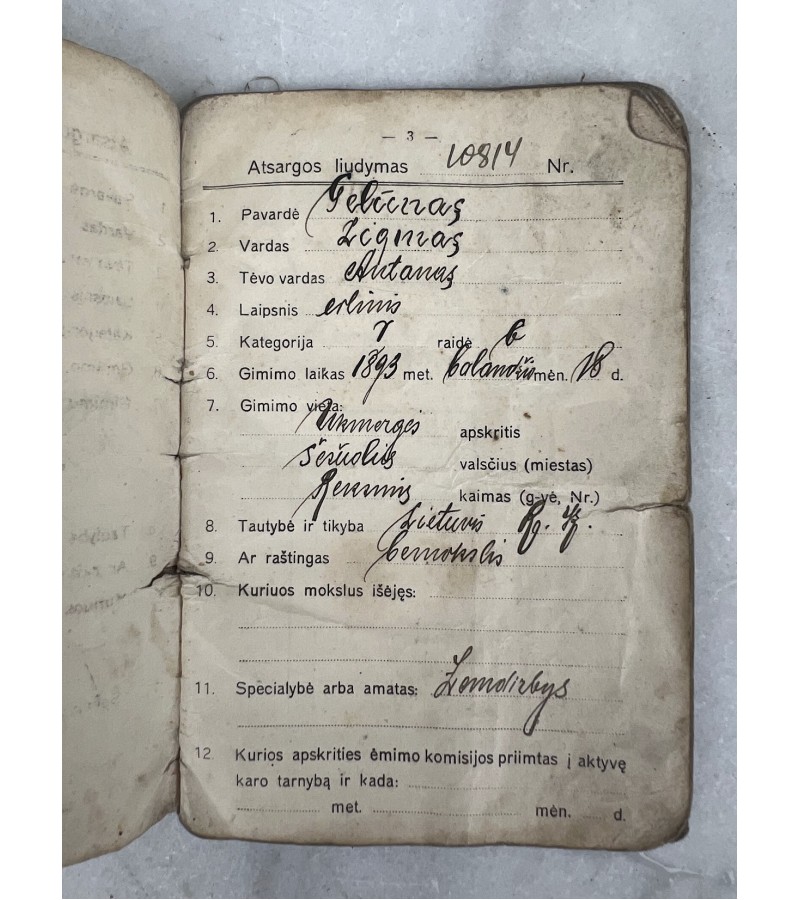 — 3 —
Atsargos liudymas 10814 Nr.
1. Pavardė Geliunas
2. Vardas Zigmas
3. Tėvo vardas Antanas
4. Laipsnis eilinis
5. Kategorija raidė b
6. Gimimo laikas 1893 met. balandžio mėn. 18 d.
7. Gimimo vieta:
Ukmergės apskritis
Šešuolių valsčius (miestas)
kaimas (g-vė, Nr.)
8. Tautybė ir tikyba Lietuvis
9. Ar raštingas bemokslis
10. Kuriuos mokslus išėjęs:
11. Specialybė arba amatas: Žemdirbys
12. Kurios apskrities ėmimo komisijos priimtas į aktyvę
karo tarnybą ir kada:
met. mėn. d.